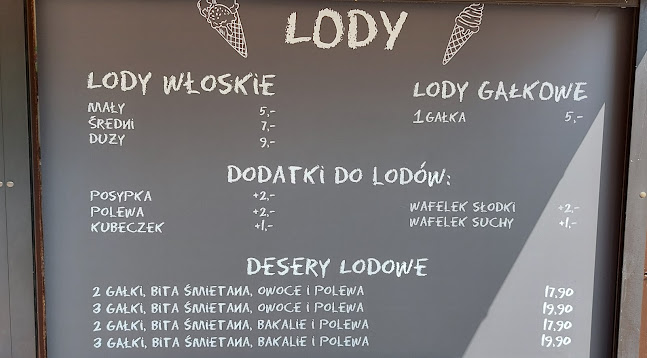 LODY
LODY WŁOSKIE
MAŁY 5,-
ŚREDNI 7,-
DUZY 9,-
LODY GAŁKOWE
1 GAŁKA 5,-
DODATKI DO LODÓW:
POSYPKA +2,-
POLEWA +2,-
KUBECZEK +1,-
WAFELEK SŁODKI +2,-
WAFELEK SUCHY +1,-
DESERY LODOWE
2 GAŁKI, BITA ŚMIETANA, OWOCE I POLEWA 17,90
3 GAŁKI, BITA ŚMIETANA, OWOCE I POLEWA 19,90
2 GAŁKI, BITA ŚMIETANA, BAKALIE I POLEWA 17,90
3 GAŁKI, BITA ŚMIETANA, BAKALIE I POLEWA 19,90